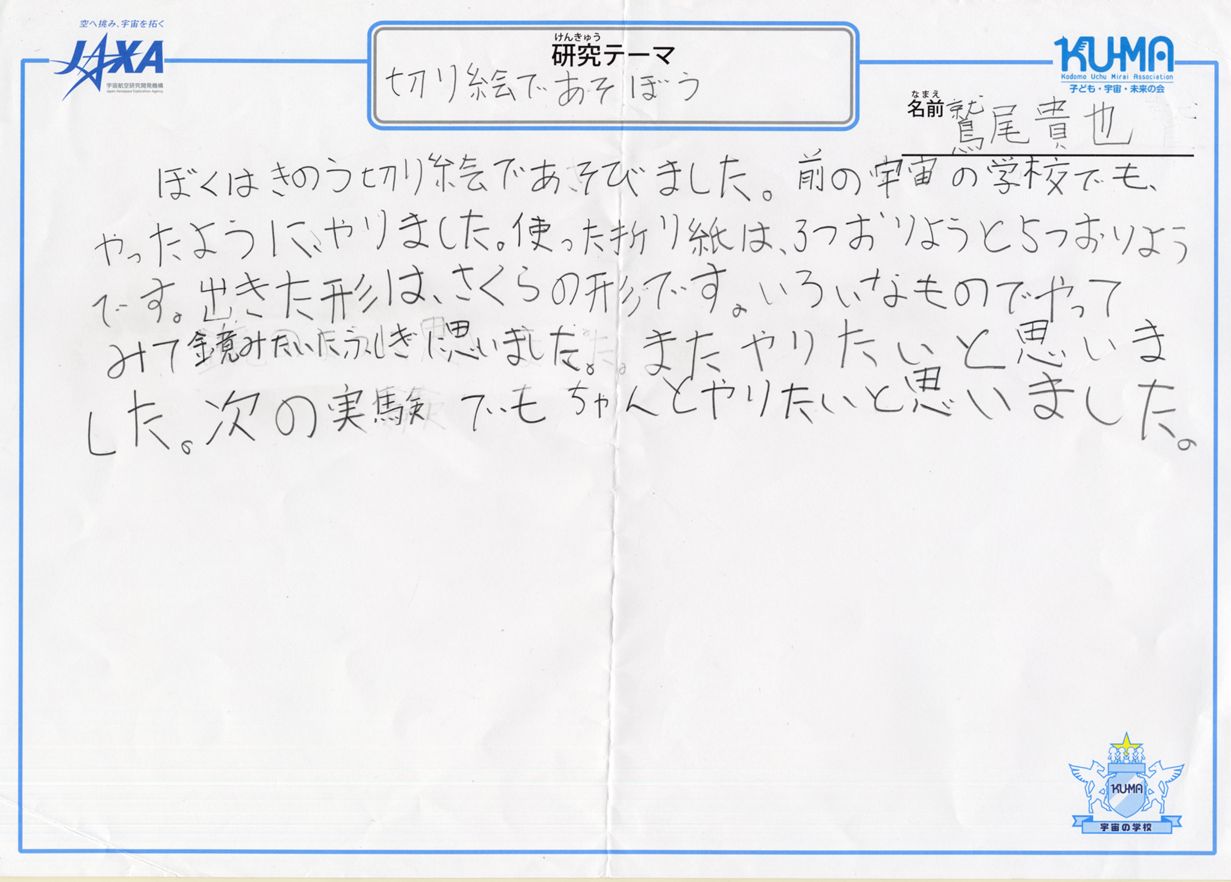 空へ挑み、宇宙を拓く
JAXA
宇宙航空研究開発機構
Japan Aerospace Exploration Agency
けんきゅう
研究テーマ
切り絵であそぼう
KU-MA
Kodomo Uchu Mirai Association
子ども・宇宙・未来の会
なまえ
名前 鷲尾貴也
ぼくはきのう切り絵であそびました。前の宇宙の学校でも、
やったように、やりました。使った折り紙は、3つおりようと5つおりよう
です。出きた形は、さくらの形です。いろいなものでやって
みて鏡みたいたふしぎに思いました。またやりたいと思いま
した。次の実験でもちゃんとやりたいと思いました。
KU-MA
宇宙の学校